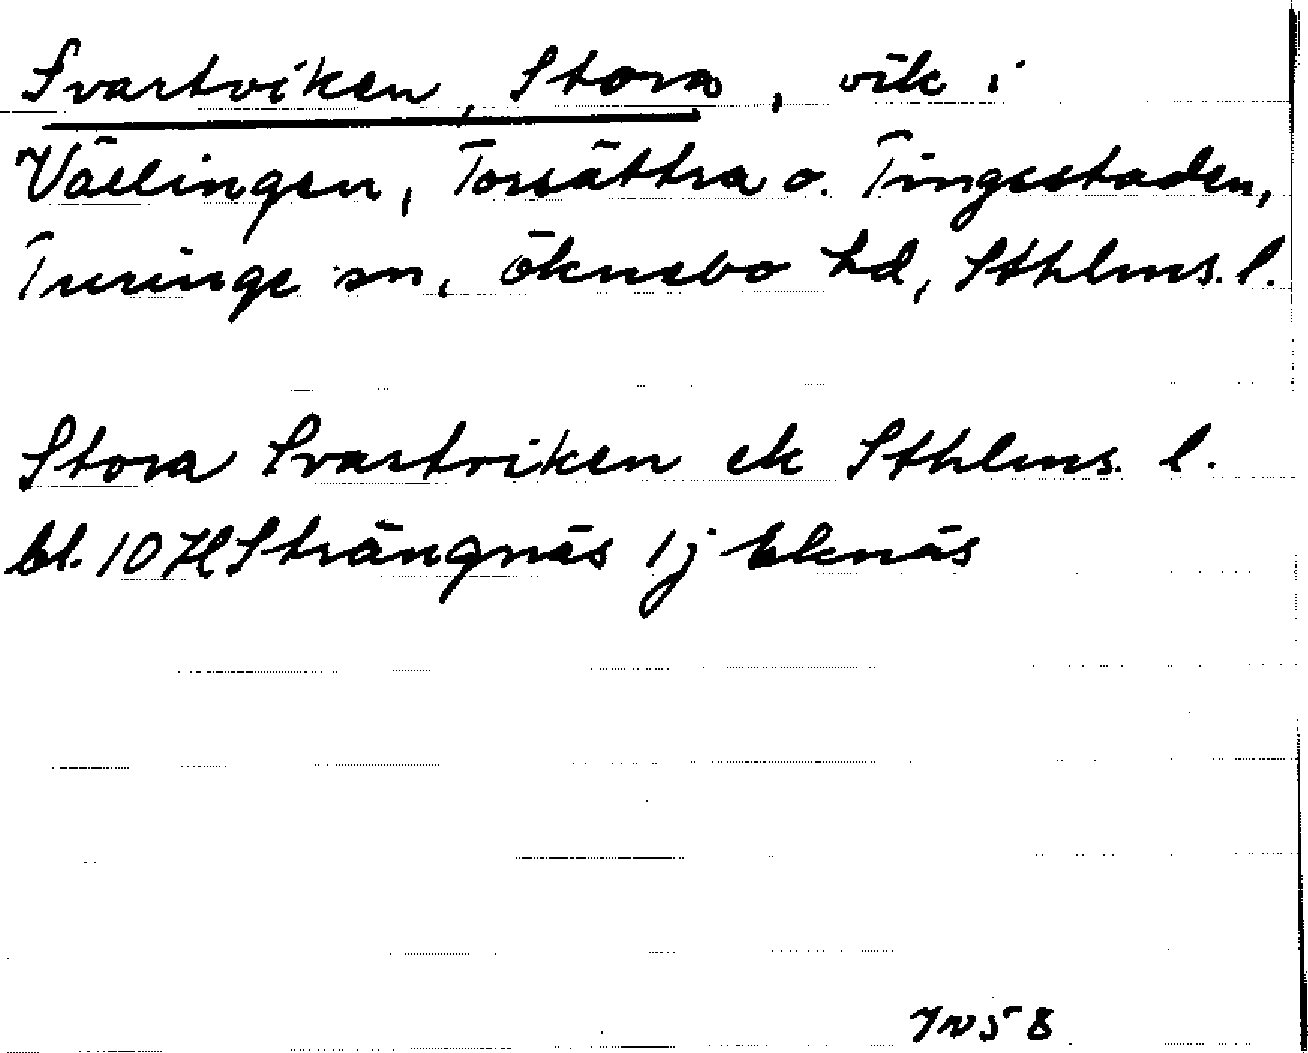 Svartviken, Stora, vik i
Vällingen, Torsättra o. Tingsstaden,
Turinge sn, Öknebo hd, Sthlms. l.
Stora Svartviken ek Sthlms. l.
bl. 10 H Strängnäs 1j Eknäs